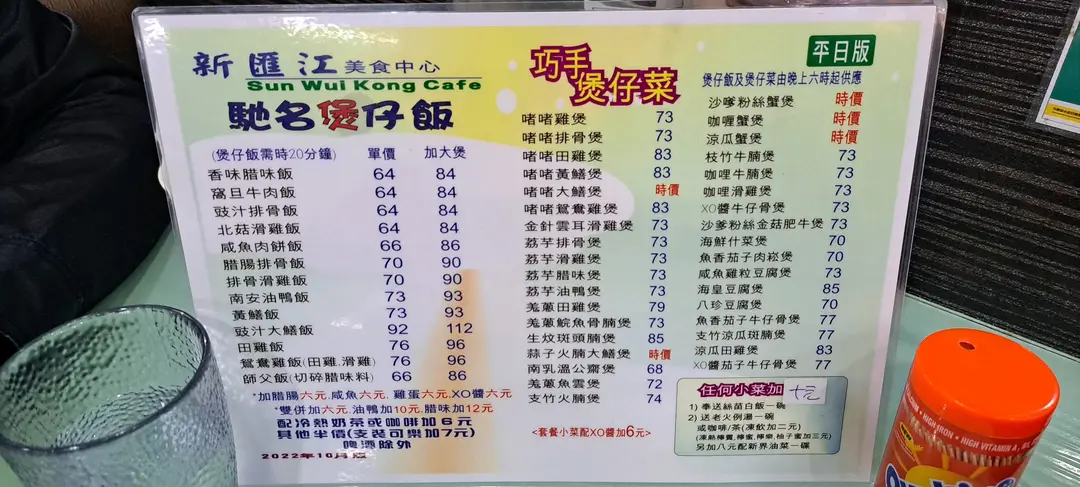 新匯江美食中心
Sun Wui Kong Cafe
馳名煲仔飯
(煲仔飯需時20分鐘) 單價 加大煲
香味腊味飯 64 84
窩旦牛肉飯 64 84
豉汁排骨飯 64 84
北菇滑雞飯 64 84
咸魚肉餅飯 66 86
腊腸排骨飯 70 90
排骨滑雞飯 70 90
南安油鴨飯 73 93
黃鱔飯 73 93
豉汁大鱔飯 92 112
田雞飯 76 96
鴛鴦雞飯(田雞.滑雞) 76 96
師父飯(切碎腊味料) 66 86
*加腊腸六元,咸魚六元, 雞蛋六元,XO醬六元
*雙併加六元,油鴨加10元,腊味加12元
配冷熱奶茶或咖啡加6元
其他半價(支裝可樂加7元)
啤酒除外
2022年10月版
巧手
煲仔菜
啫啫雞煲 73
啫啫排骨煲 73
啫啫田雞煲 83
啫啫黃鱔煲 83
啫啫大鱔煲 時價
啫啫鴛鴦雞煲 83
金針雲耳滑雞煲 73
荔芋排骨煲 73
荔芋滑雞煲 73
荔芋腊味煲 73
荔芋油鴨煲 73
羗蔥田雞煲 79
羗蔥鯇魚骨腩煲 73
生炆斑頭腩煲 85
蒜子火腩大鱔煲 時價
南乳溫公齋煲 68
羗蔥魚雲煲 72
支竹火腩煲 74
<套餐小菜配XO醬加6元>
平日版
煲仔飯及煲仔菜由晚上六時起供應
沙嗲粉絲蟹煲 時價
咖喱蟹煲 時價
涼瓜蟹煲 時價
枝竹牛腩煲 73
咖哩牛腩煲 73
咖哩滑雞煲 73
XO醬牛仔骨煲 73
沙爹粉絲金菇肥牛煲 73
海鮮什菜煲 70
魚香茄子肉崧煲 70
咸魚雞粒豆腐煲 73
海皇豆腐煲 85
八珍豆腐煲 70
魚香茄子牛仔骨煲 77
支竹涼瓜斑腩煲 77
涼瓜田雞煲 83
XO醬茄子牛仔骨煲 77
任何小菜加 十元
1) 奉送絲苗白飯一碗
2) 送老火例湯一碗
或咖啡/茶(凍飲加二元)
(凍熱檸賓,檸蜜,檸樂,柚子蜜加三元)
另加八元配新界油菜一碟
HIGH IRON • HIGH VITAMIN A,